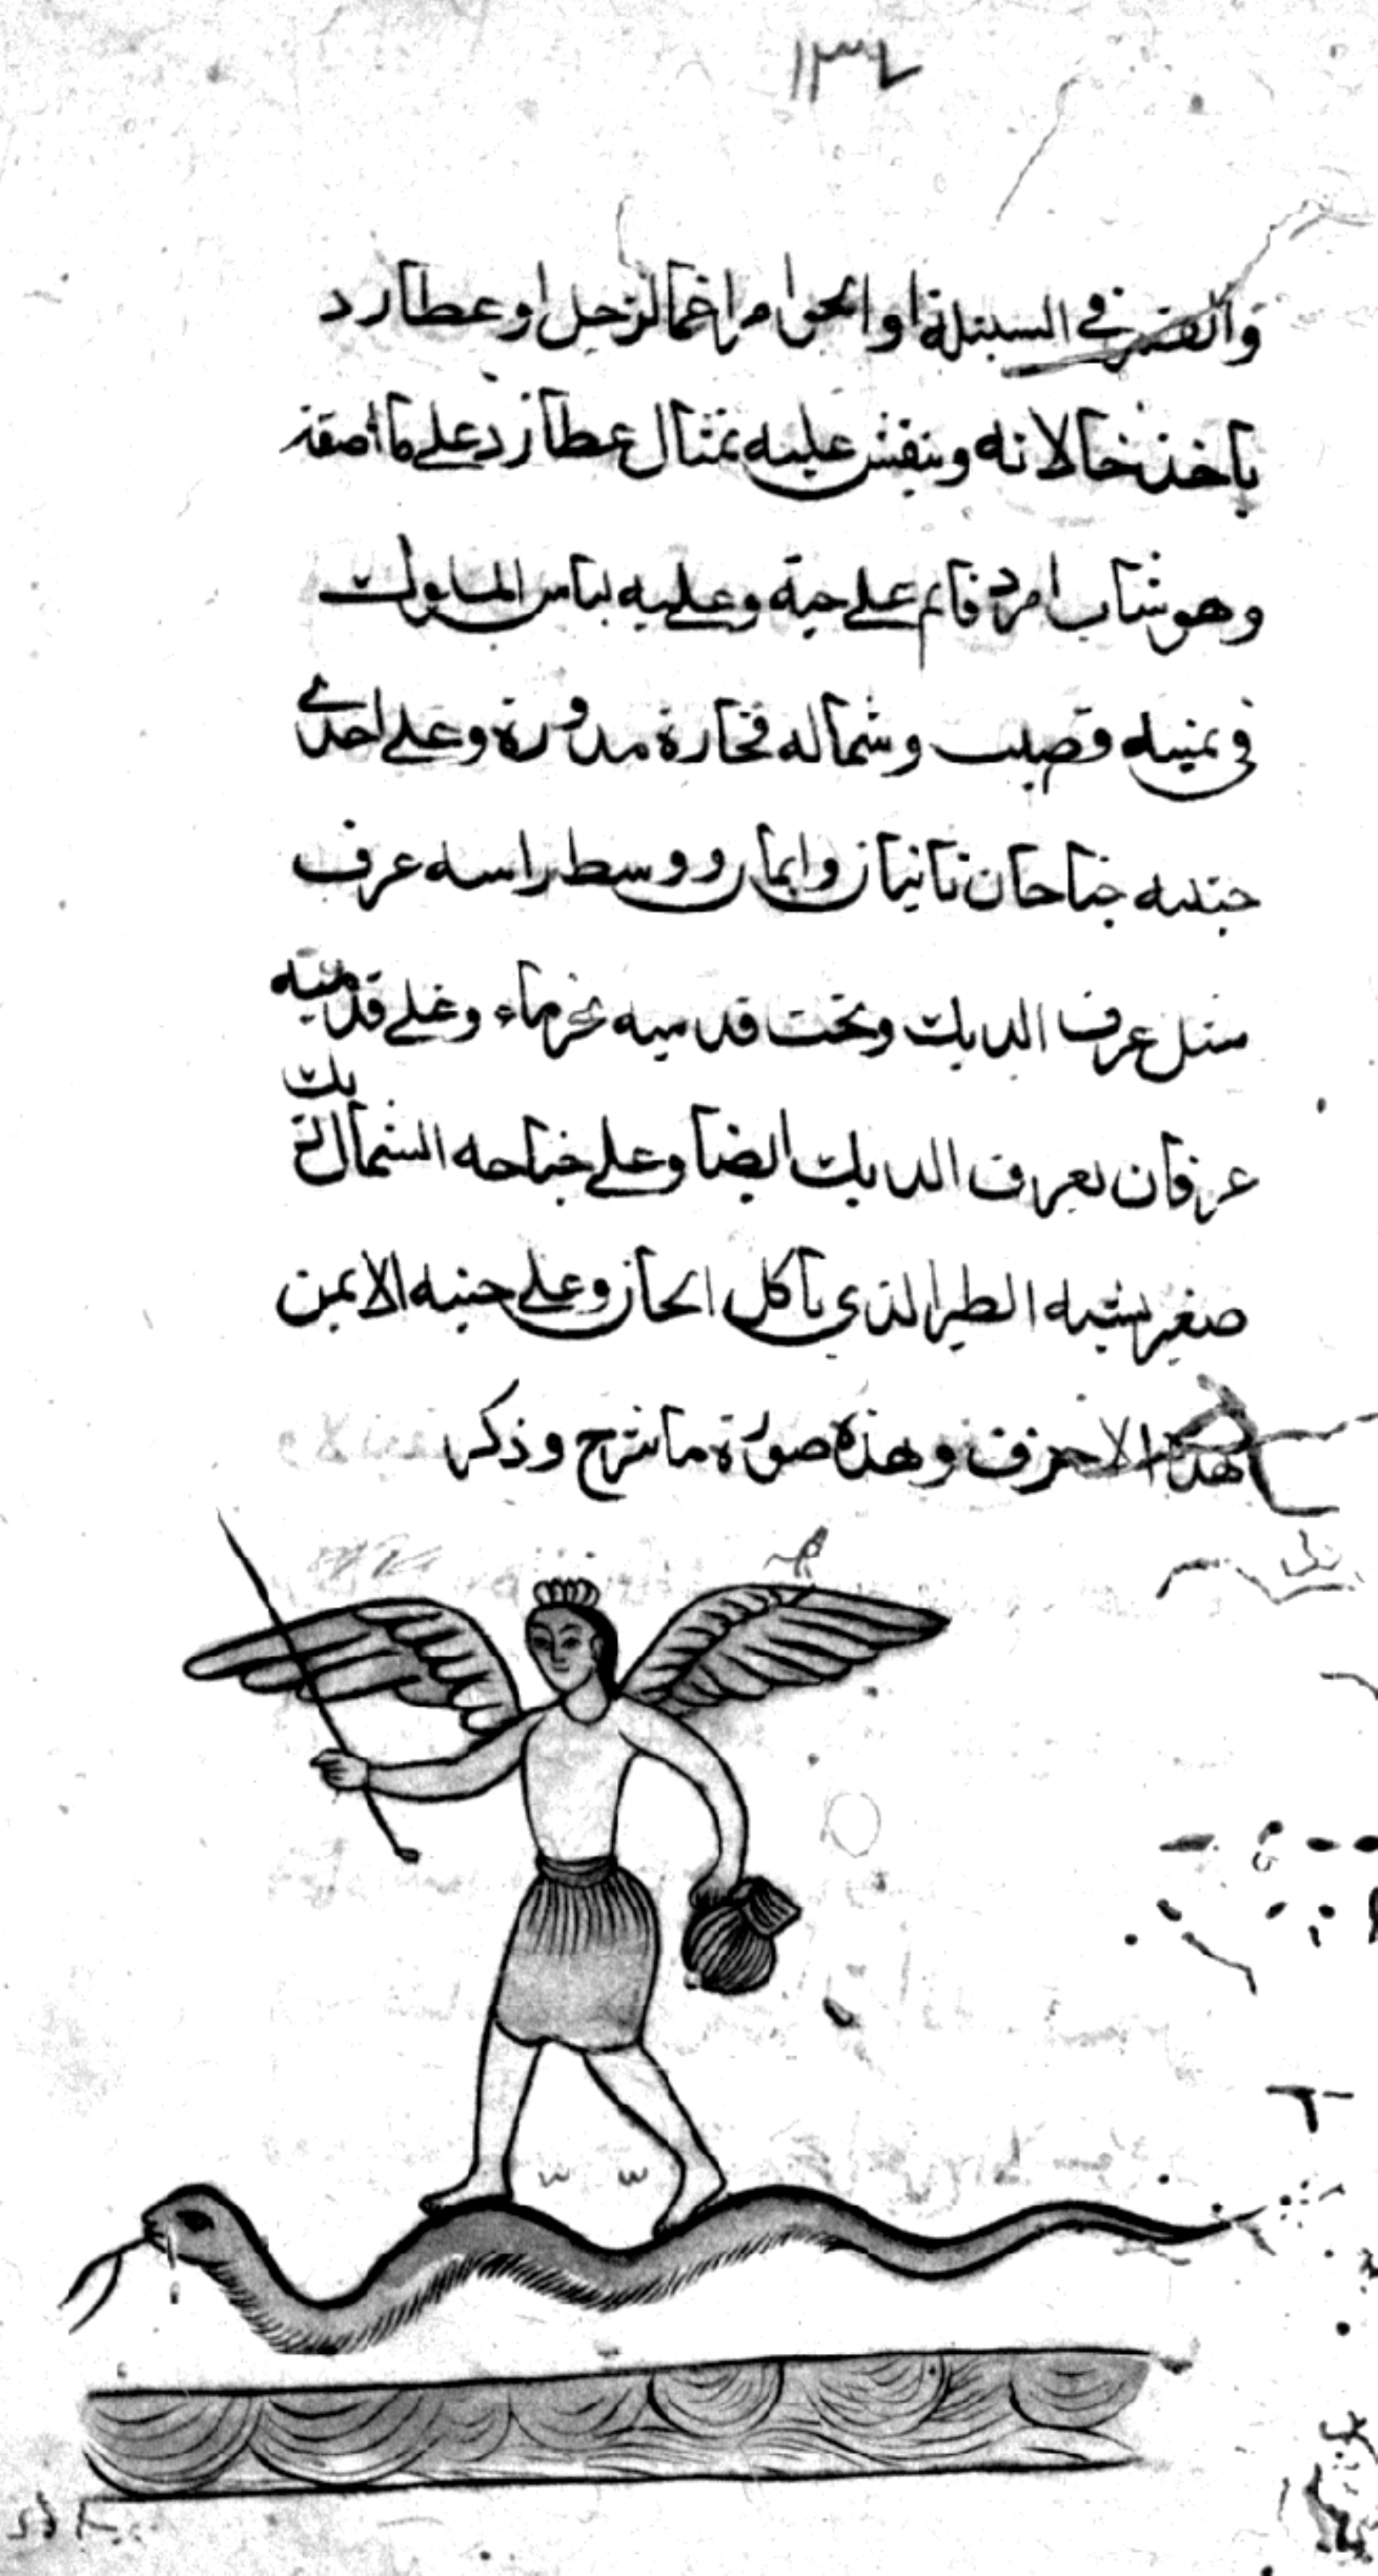 ١٣٦
والقمر في السنبلة او الجوزا من اعمال زحل او عطارد
ياخذ خالانه وينقش عليه تمثال عطارد على ما اصفه
وهو شاب امرد قايم على حية وعليه لباس الملوك
في يمينه قضيب وشماله فخارة مدورة وعلى احدى
جنبيه جناحان نابتان وسط راسه عرف
مثل عرف الديك وتحت قدميه بحر ماء وعلى قدميه
عرفان بعرف الديك ايضا وعلى جناحه الشمال ديك
صغير يشبه الطير الذي ياكل وعلى جنبه الايمن
هذا الاحرف وهذه صورة ما شرح وذكر